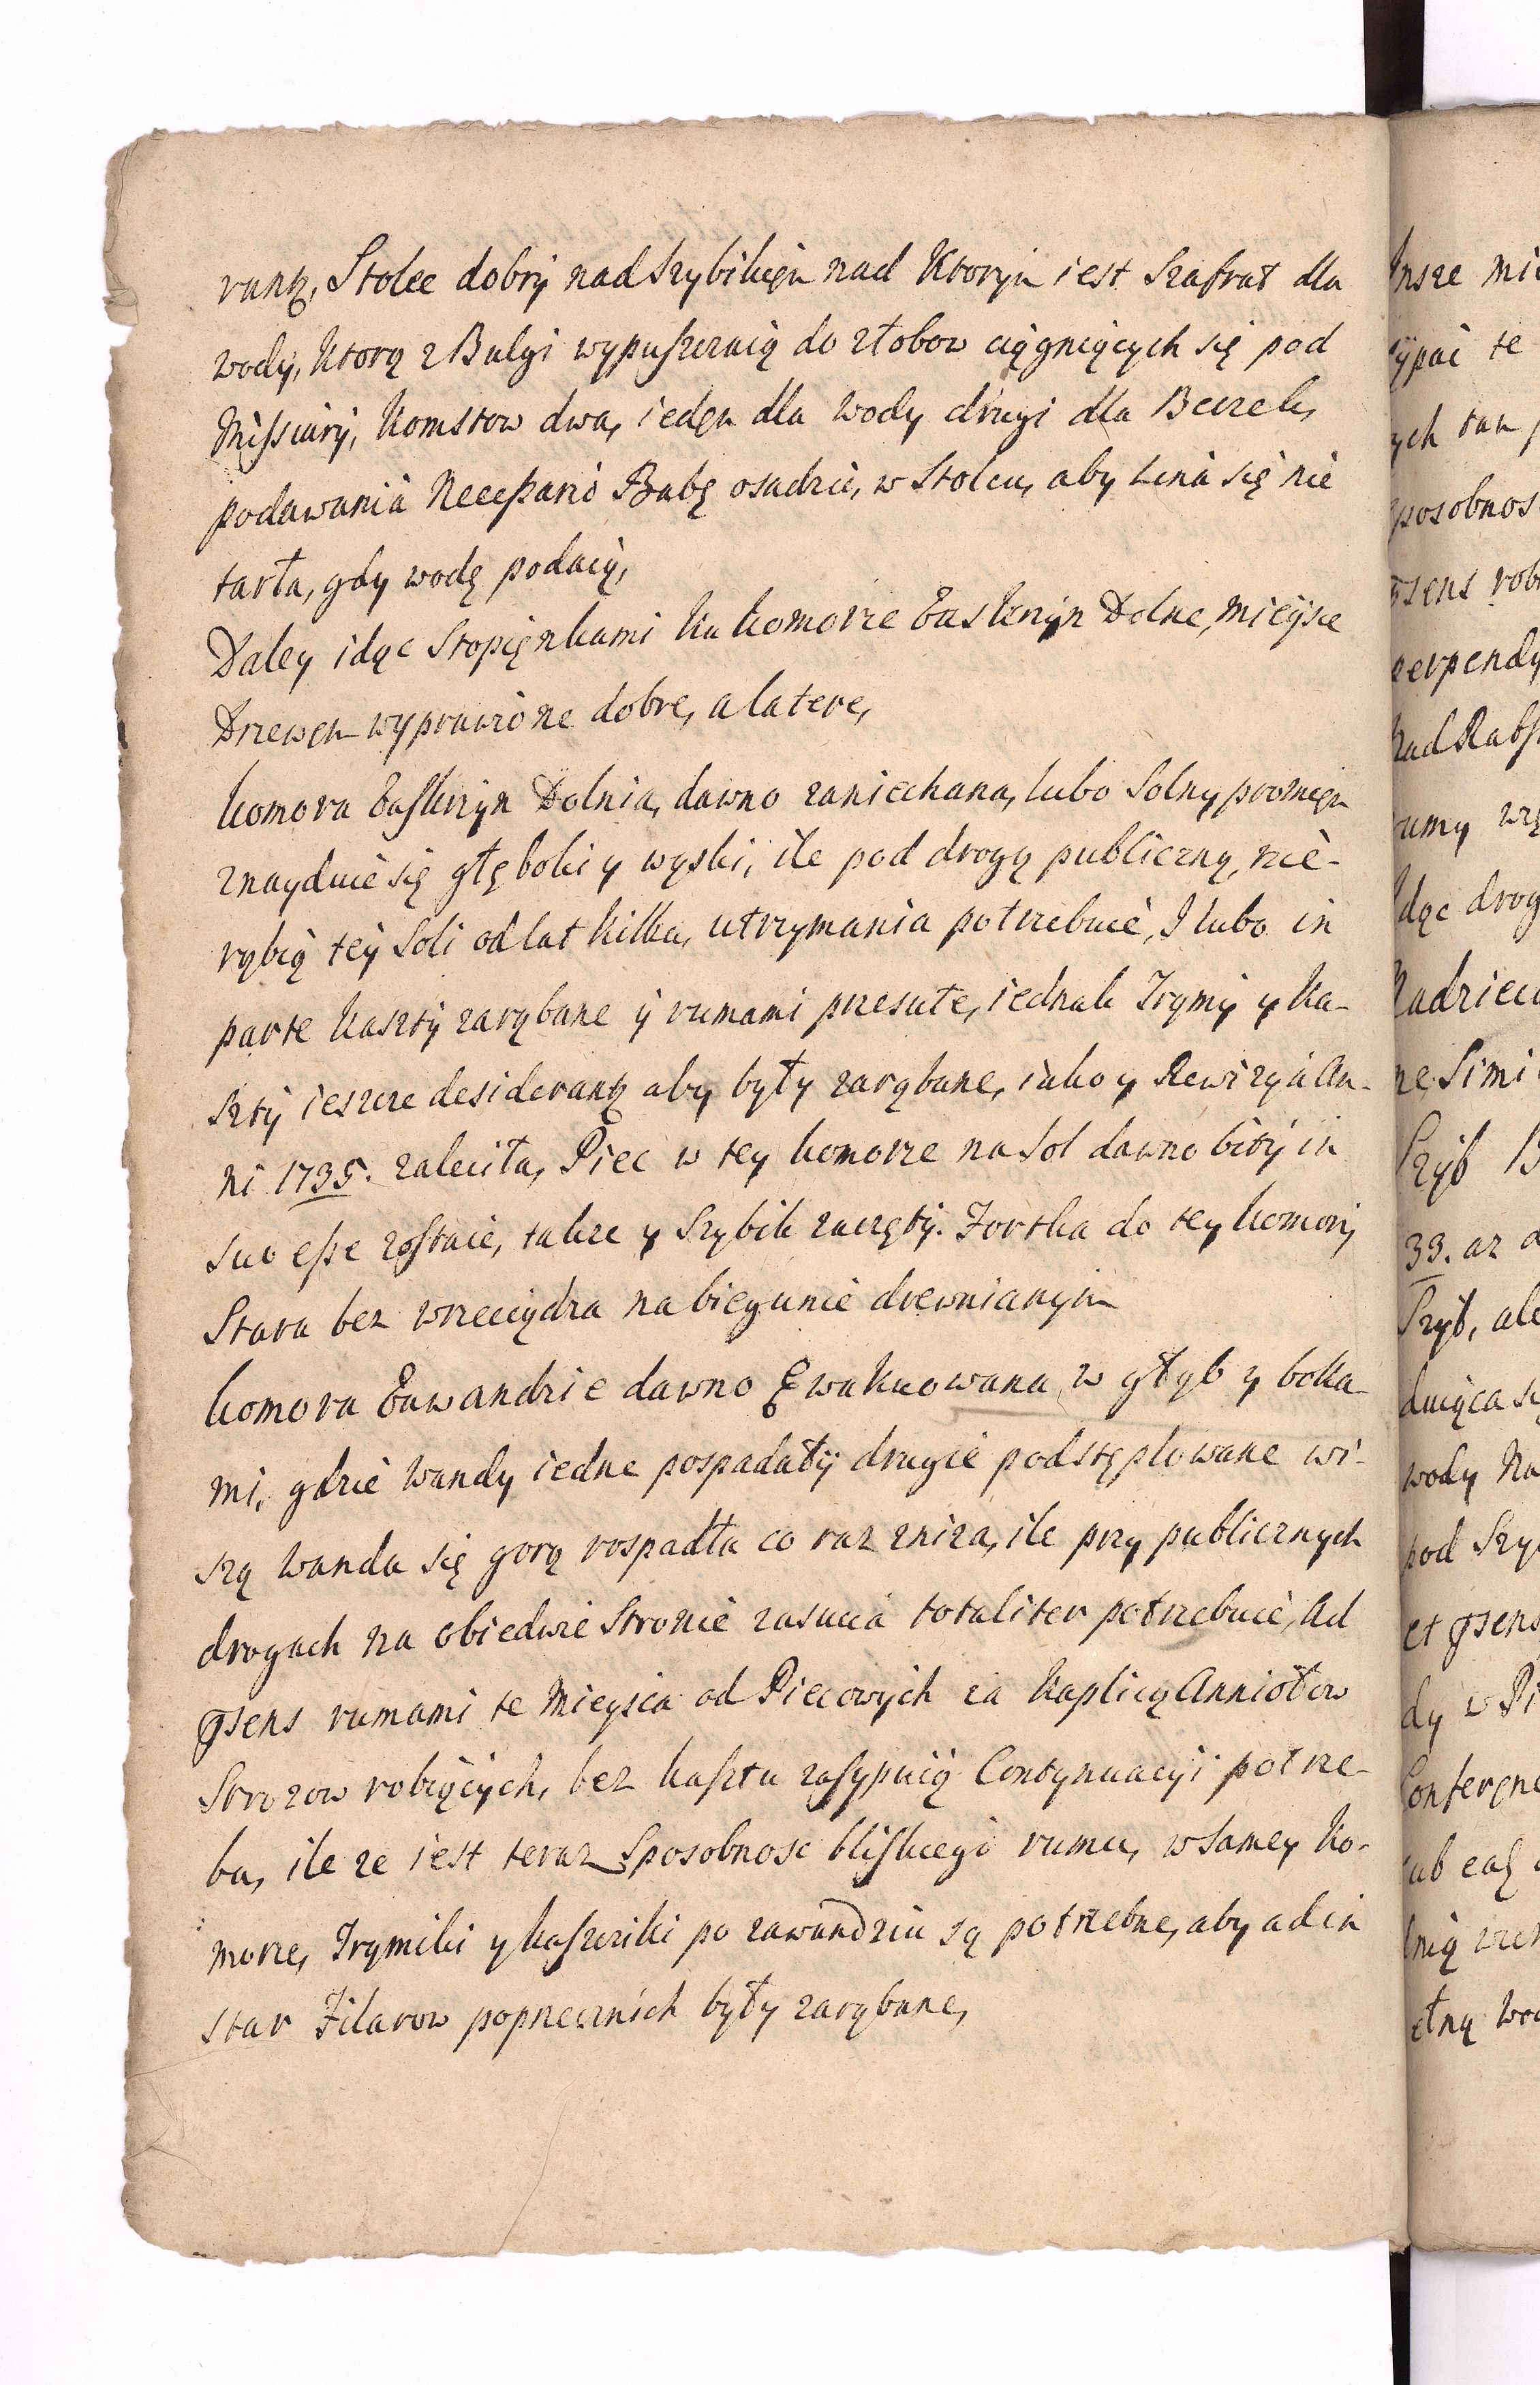 rantz, Stolec dobrÿ nad Szybikięm nad Ktorÿm iest Szafrat dla
wody, Ktorą z Bulgi wypuszczaią do złobow ciągniących się pod
Missiurÿ, Komstow dwa, iedęn dla wody drugi dla Beczek,
podawania Necessario Babę osadzić, w Stolcu, aby Lina się nie
tarła, gdy wodę podaią,
Daley idąc Stopięnkami Ku komorze Baskrzÿn Dolne, mieÿsce
Drzewęm wyprawione dobre, a latere,
komora Baskrzyn Dolnia, dawno zaniechana, lubo Solny promięn
znayduie się głęboki y wąski, ile pod drogą publiczną, nie-
rąbią teÿ Soli od lat kilku, utrzymania potrzebuie, I lubo in
parte kasztÿ zarąbane ÿ rumami przesute, iednak Trymÿ y ka-
sztÿ ieszcze desiderantz aby były zarąbane, iako y Rewizya An-
ni 1735. zaleciła, Piec w tey komorze na Sol dawno bitÿ in
suo esse zostaie, takze y Szybik zaczętÿ. Fortka do tey komorÿ
Stara bez wrzeciądza na biegunie drewnianym
komora Zawandzie dawno Ewakuowana w głąb y boka-
mi, gdzie Wandy iedne pospadałÿ drugie podstęplowane wi-
szą Wanda się gorą rospadła co raz zniza, ile przy publicznych
drogach na obiedwie Stronie zasucia totaliter potrzebuie, Ad
psens rumami te Mieysca od Piecowych za Kaplicą Anniołow
Strozow robiących, bez kasztu zasypuią Contynuacyi potrze-
ba, ile ze iest teraz Sposobnosc bliskiego rumu, w Samey Ko-
morze, Trymiki y kaszciki po zawandziu są potrzebne, aby ad in
star Filarow poprzecznich były zarąbane,